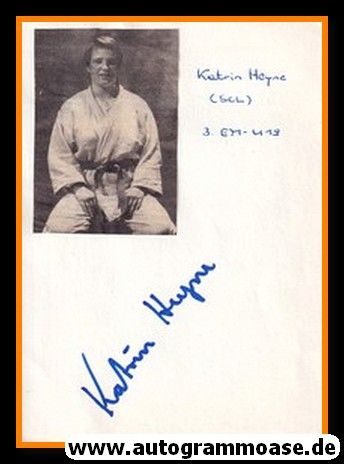 Katrin Heyne
(SCL)
3. EM-U19
Katrin Heyne
www.autogrammoase.de